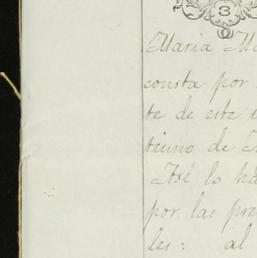 3
Maria M
consta por
te de este
tiuno de
Asé lo ha
por las pre
les: al